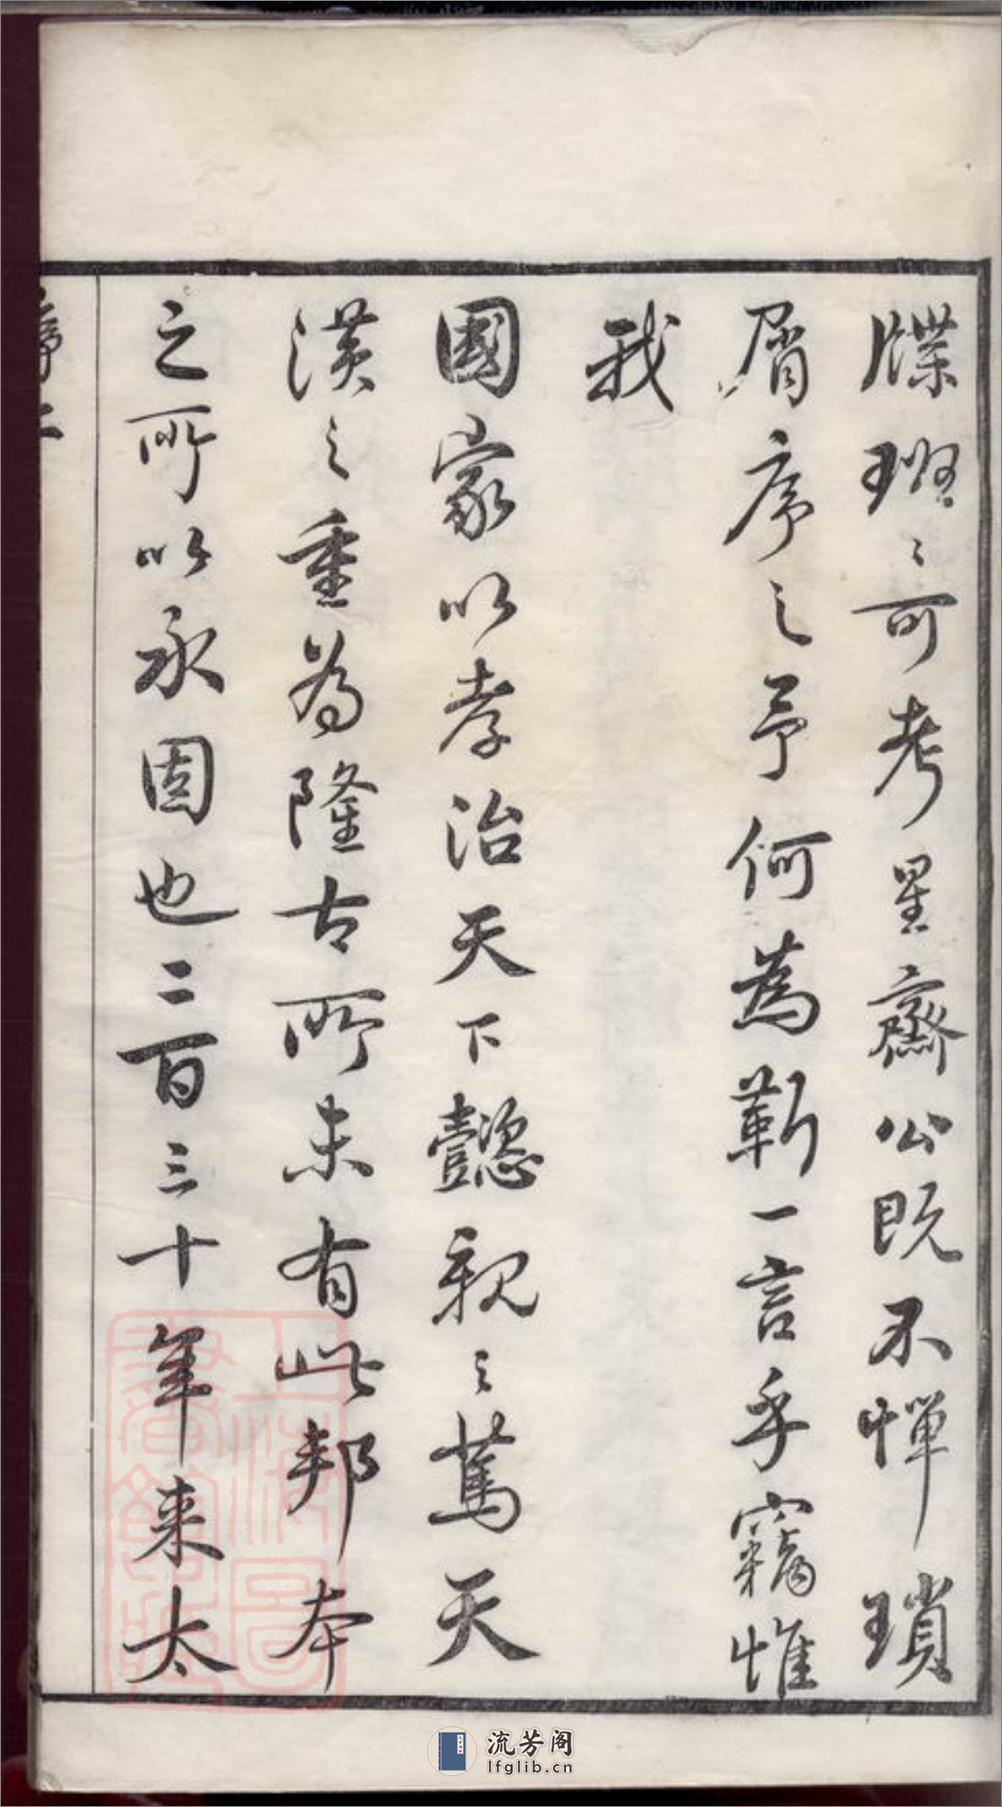 牒班〻可考星齋公既不憚瑣
屑序之予何為靳一言乎竊惟
我
國家以孝治天下懿親之篤天
潢之重為隆古所未有此邦本
之所以永固也二百三十年来太
序 二
上海圖書館藏
流芳阁
lfglib.cn